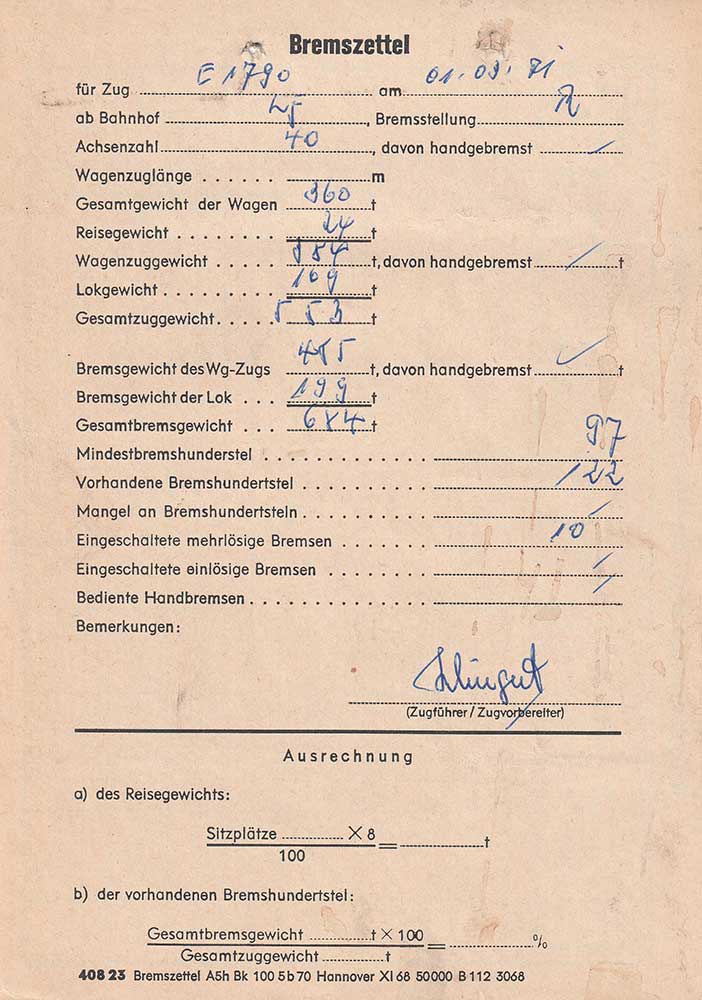 Bremszettel
für Zug E 1790 am 01.09.71
ab Bahnhof , Bremsstellung R
Achsenzahl 40 , davon handgebremst /
Wagenzuglänge . . . . . . m
Gesamtgewicht der Wagen 360 t
Reisegewicht . . . . . . . . 24 t
Wagenzuggewicht . . . . . 384 t, davon handgebremst / t
Lokgewicht . . . . . . . . . 169 t
Gesamtzuggewicht . . . . . 553 t
Bremsgewicht des Wg-Zugs 485 t, davon handgebremst / t
Bremsgewicht der Lok . . . 199 t
Gesamtbremsgewicht . . . 684 t
Mindestbremshunderstel . . . . . . . . . . . . 97
Vorhandene Bremshundertstel . . . . . . . . . 122
Mangel an Bremshundertsteln . . . . . . . . . /
Eingeschaltete mehrlösige Bremsen . . . . . . . 10
Eingeschaltete einlösige Bremsen . . . . . . . . /
Bediente Handbremsen . . . . . . . . . . . . . /
Bemerkungen:
(Zugführer / Zugvorbereiter)
Ausrechnung
a) des Reisegewichts:
Sitzplätze ............ × 8
= .................. t
100
b) der vorhandenen Bremshundertstel:
Gesamtbremsgewicht ............ t × 100
= .................. %
Gesamtzuggewicht ............ t
408 23 Bremszettel A5h Bk 100 5b 70 Hannover XI 68 50000 B 112 3068